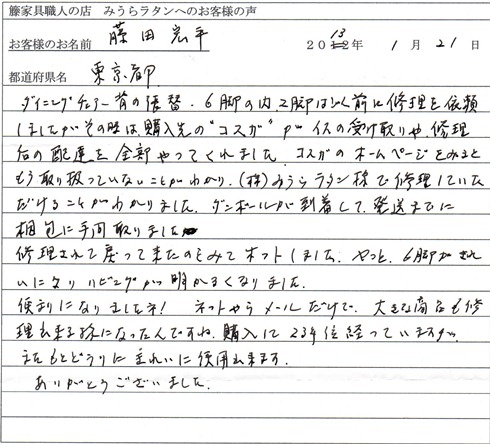 籐家具職人の店 みうらラタンへのお客様の声
お客様のお名前 藤田宏平 2013年 1月21日
都道府県名 東京都
ダイニングチェアー背の張替. 6脚の内、2脚はしばらく前に修理を依頼
しましたがその時は、購入先の"コスガ"がイスの受け取りや修理
后の配達を全部やってくれました. コスガのホームページをみると
もう取り扱っていないことがわかり、(株)みうらラタン様で修理していた
だけることがわかりました. ダンボールが到着して、発送までに
梱包に手間取りました
修理されて戻って来たのをみてホットしました. やっと、6脚がきれ
いになりリビングが明かるくなりました.
便利になりましたネ! ネットやらメールだけで、大きな商品も修
理出来る様になったんですね. 購入して23年位経っていますが
またもとどうりに主れいに使用出来ます.
ありがとうございました.